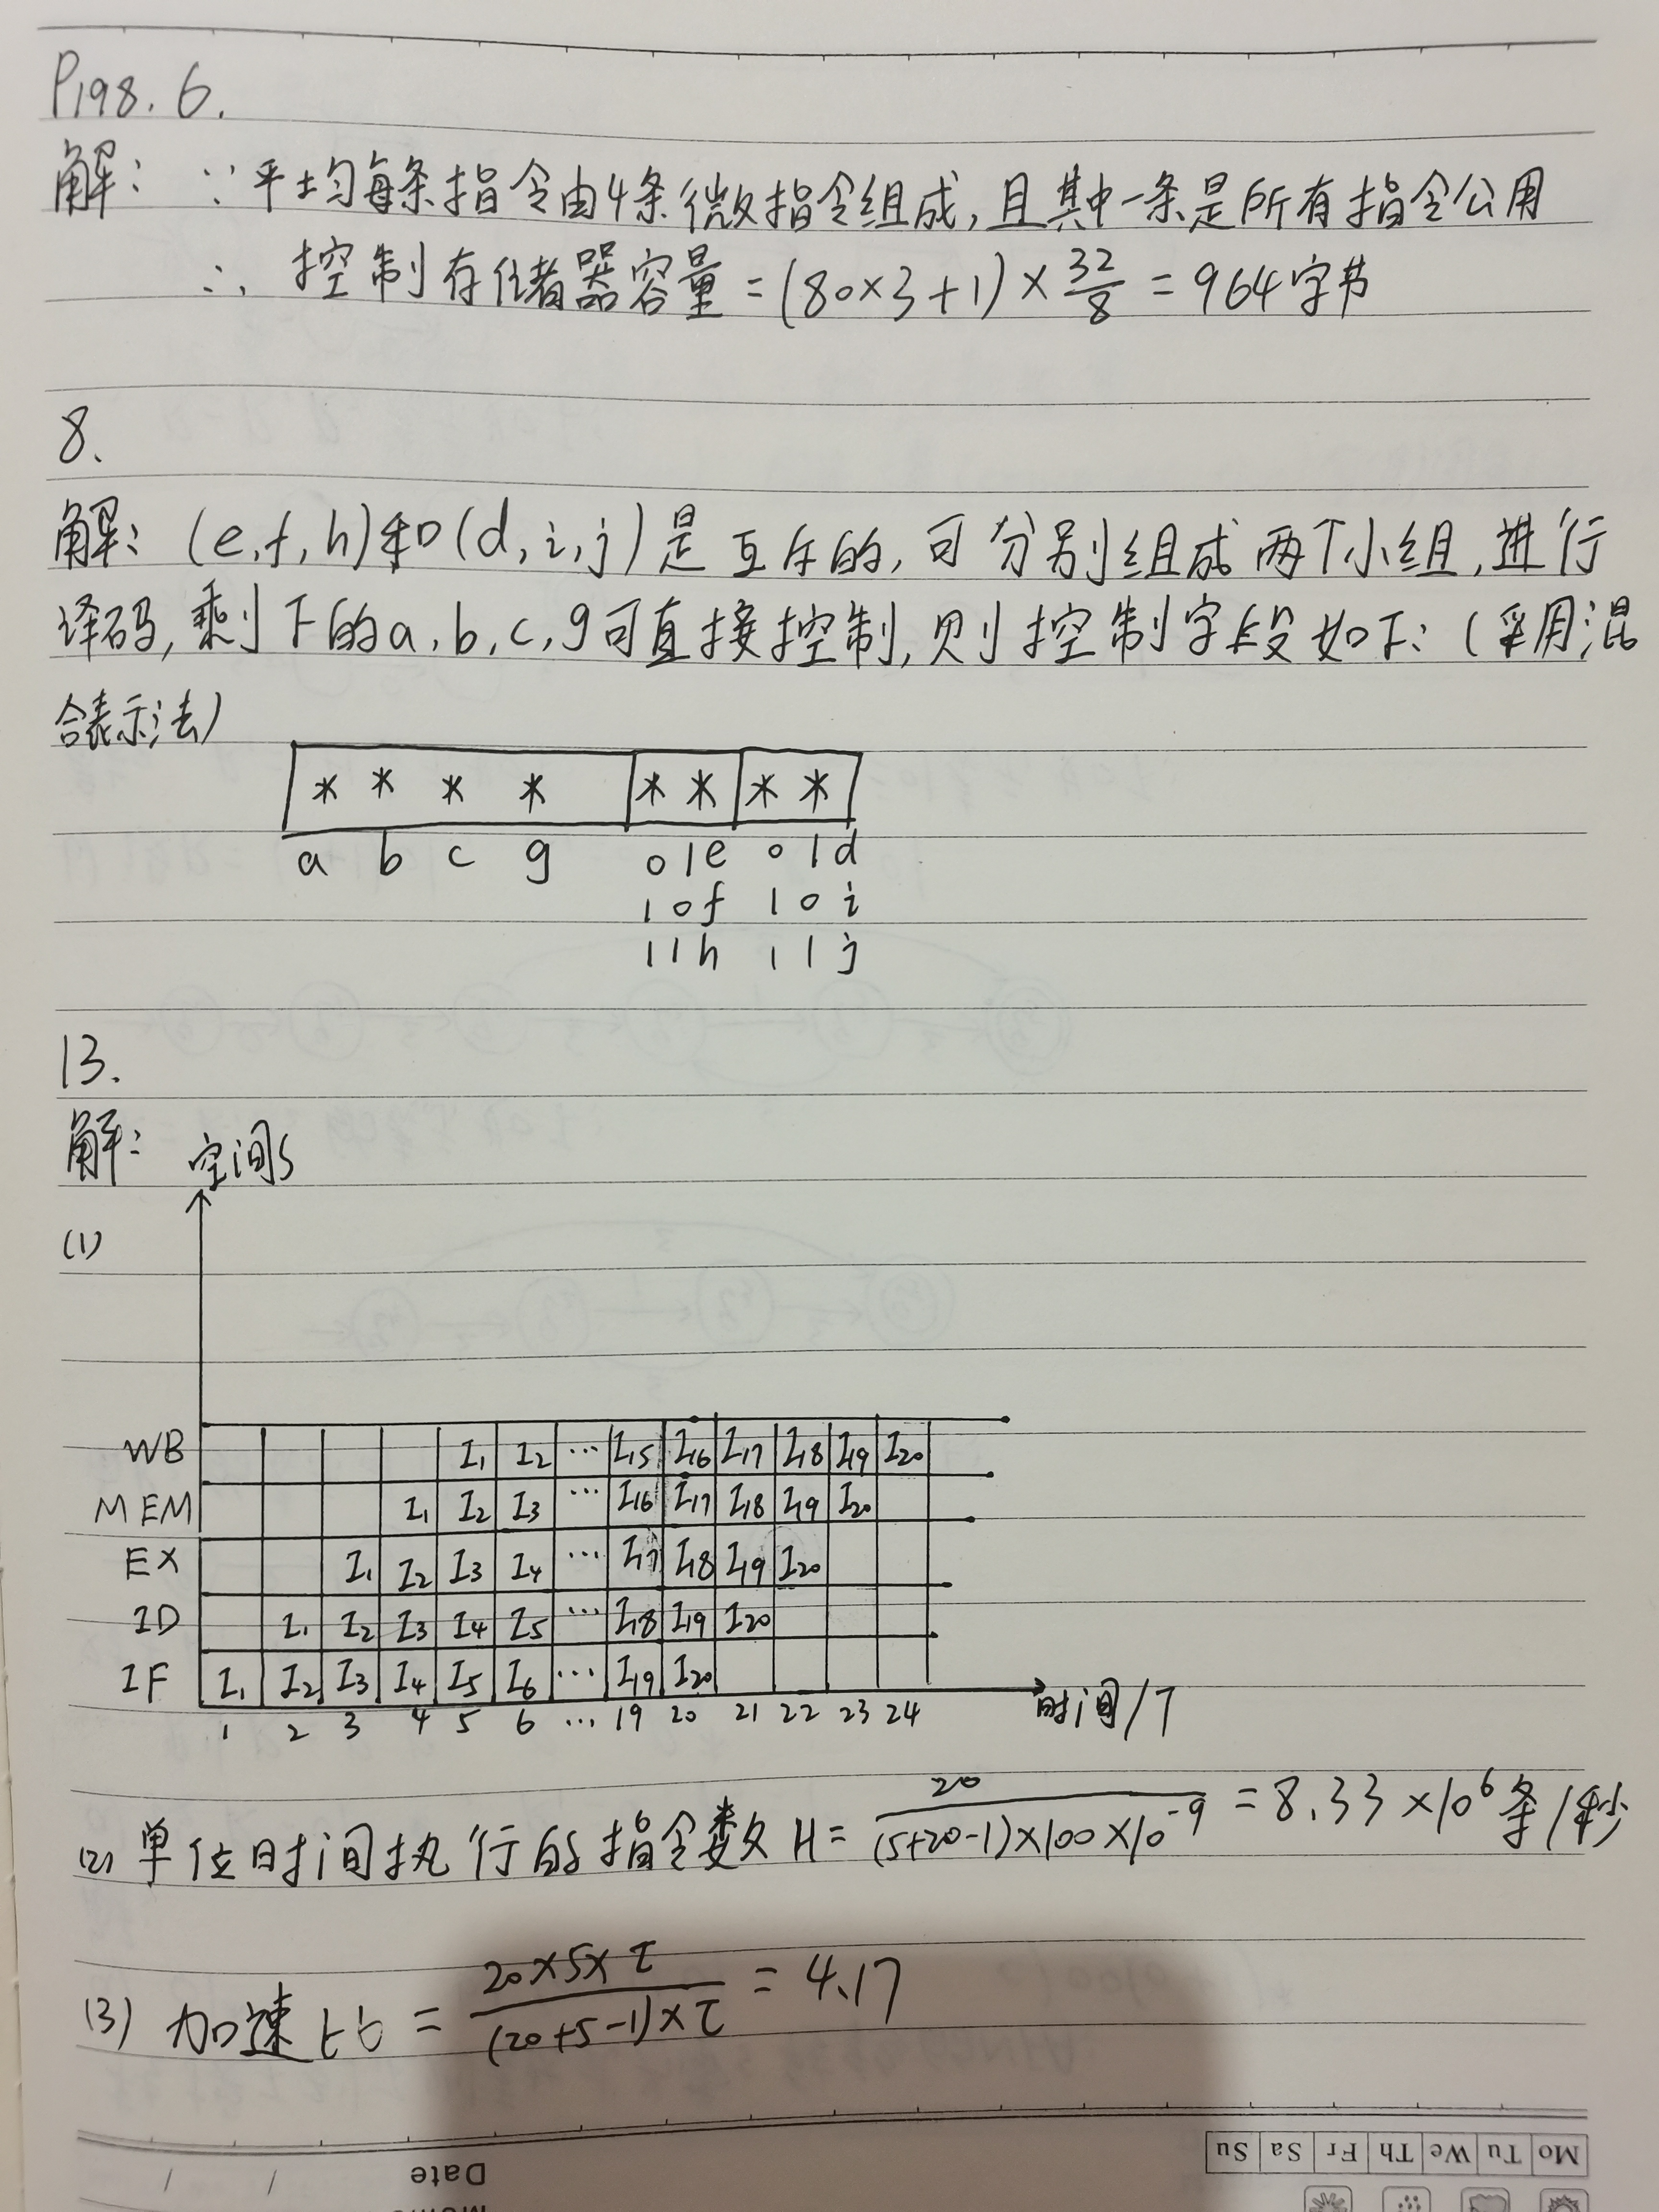 P198.6.
解: ∵平均每条指令由4条微指令组成,且其中一条是所有指令公用
∴ 控制存储器容量=(80×3+1)×32/8=964字节
8、
解:(e,f,h)和(d,i,j)是互斥的,可分别组成两个小组,进行
译码,剩下的a,b,c,g可直接控制,则控制字段如下:(采用混
合表示法)
* * * * * * * *
a b c g 01e 01d
10f 10i
11h 11j
13.
解: 空间S
(1)
WB I1 I2 … I15 I16 I17 I18 I19 I20
MEM I1 I2 I3 … I16 I17 I18 I19 I20
EX I1 I2 I3 I4 … I17 I18 I19 I20
ID I1 I2 I3 I4 I5 … I18 I19 I20
IF I1 I2 I3 I4 I5 I6 … I19 I20
1 2 3 4 5 6 … 19 20 21 22 23 24 时间/T
(2) 单位时间执行的指令数H=20/((5+20-1)×100×10^-9)=8.33×10^6条/秒
(3) 加速比=(20×5×τ)/((20+5-1)×τ)=4.17
Mo Tu We Th Fr Sa Su
Date